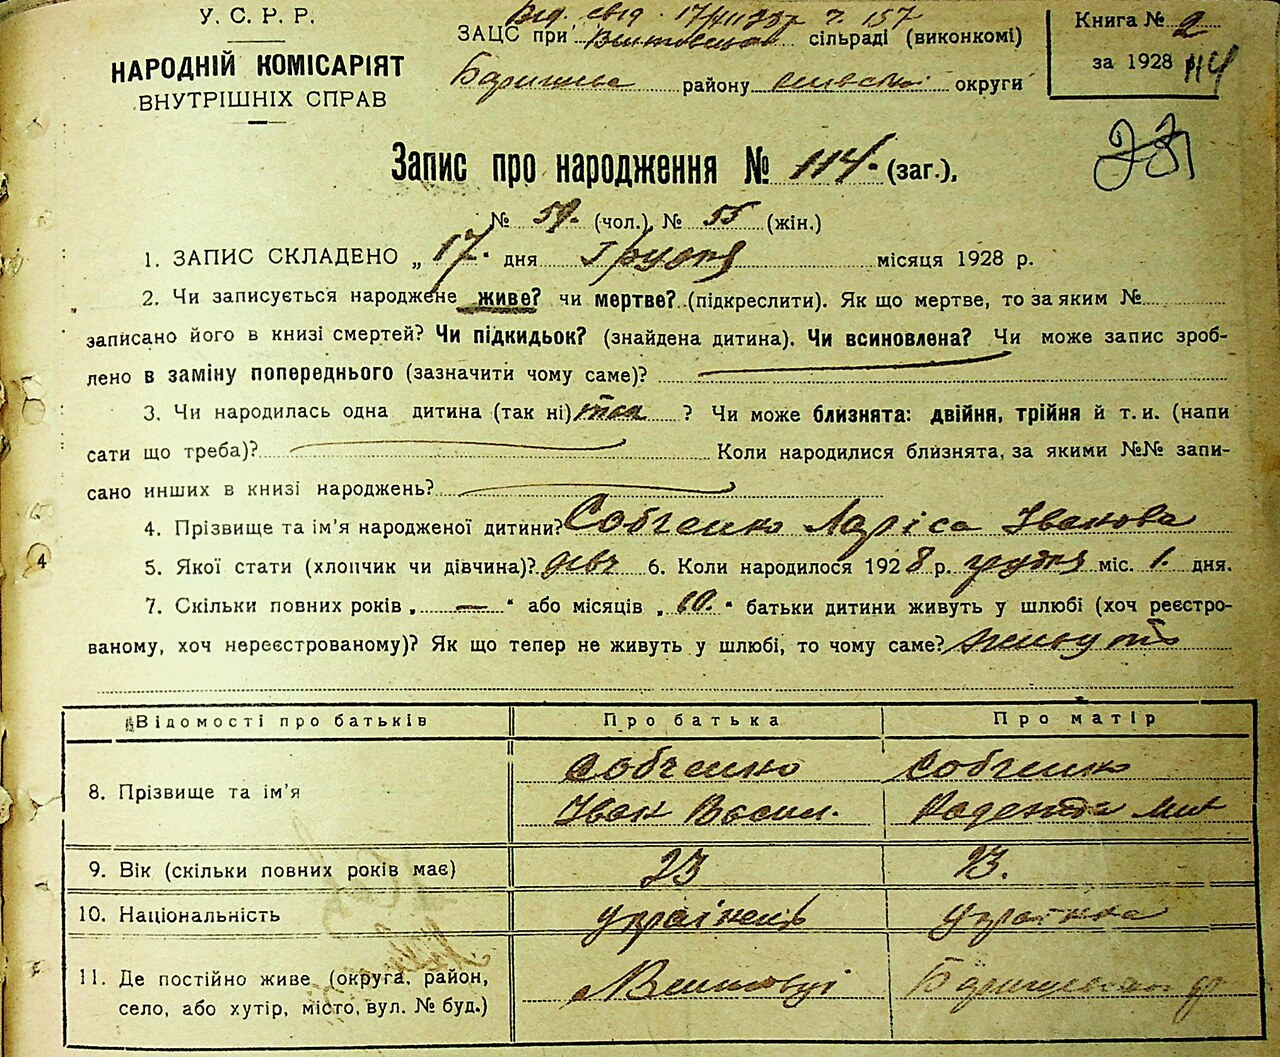 У. С. Р. Р.
НАРОДНІЙ КОМІСАРІЯТ
ВНУТРІШНІХ СПРАВ
Вид. свід. 17/XII 28р ч. 157
ЗАЦС при сільраді (виконкомі)
району округи
Книга № 2
за 1928 114
Запис про народження № 114. (заг.),
№ 59. (чол.) № 55 (жін.)
1. ЗАПИС СКЛАДЕНО „ 17. " дня Грудня місяця 1928 р.
2. Чи записується народжене живе? чи мертве? (підкреслити). Як що мертве, то за яким №
записано його в книзі смертей? Чи підкидьок? (знайдена дитина). Чи всиновлена? Чи може запис зроб-
лено в заміну попереднього (зазначити чому саме)?
3. Чи народилась одна дитина (так ні) так ? Чи може близнята: двійня, трійня й т. и. (напи
сати що треба)? Коли народилися близнята, за якими №№ запи-
сано инших в книзі народжень?
4. Прізвище та ім'я народженої дитини? Собченко Лариса Іванова
5. Якої стати (хлопчик чи дівчина)? дівч 6. Коли народилося 1928 р. грудня міс. 1. дня.
7. Скільки повних років „ — " або місяців „ 10. " батьки дитини живуть у шлюбі (хоч реєстро-
ваному, хоч нереєстрованому)? Як що тепер не живуть у шлюбі, то чому саме? живуть
Відомості про батьків Про батька Про матір
8. Прізвище та ім'я Собченко Іван Васил. Собченко
9. Вік (скільки повних років має) 23 23.
10. Національність українець українка
11. Де постійно живе (округа, район,
село, або хутір, місто, вул. № буд.)
4